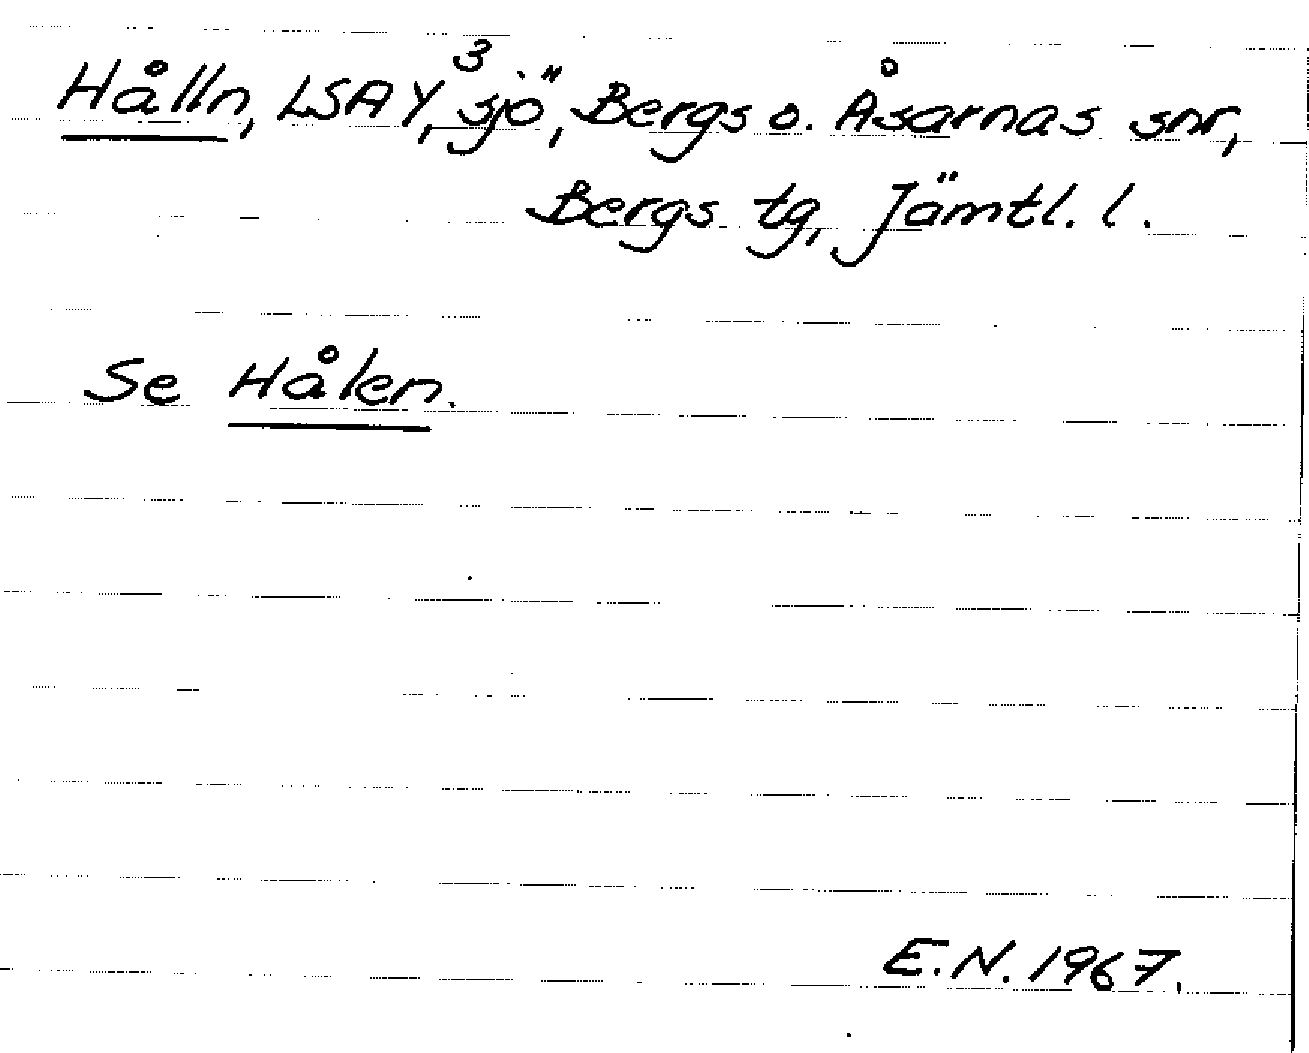 Hålln, LSAY,³ sjö, Bergs o. Åsarnas snr,
Bergs tg, Jämtl. l.
Se Hålen.
E.N. 1967.